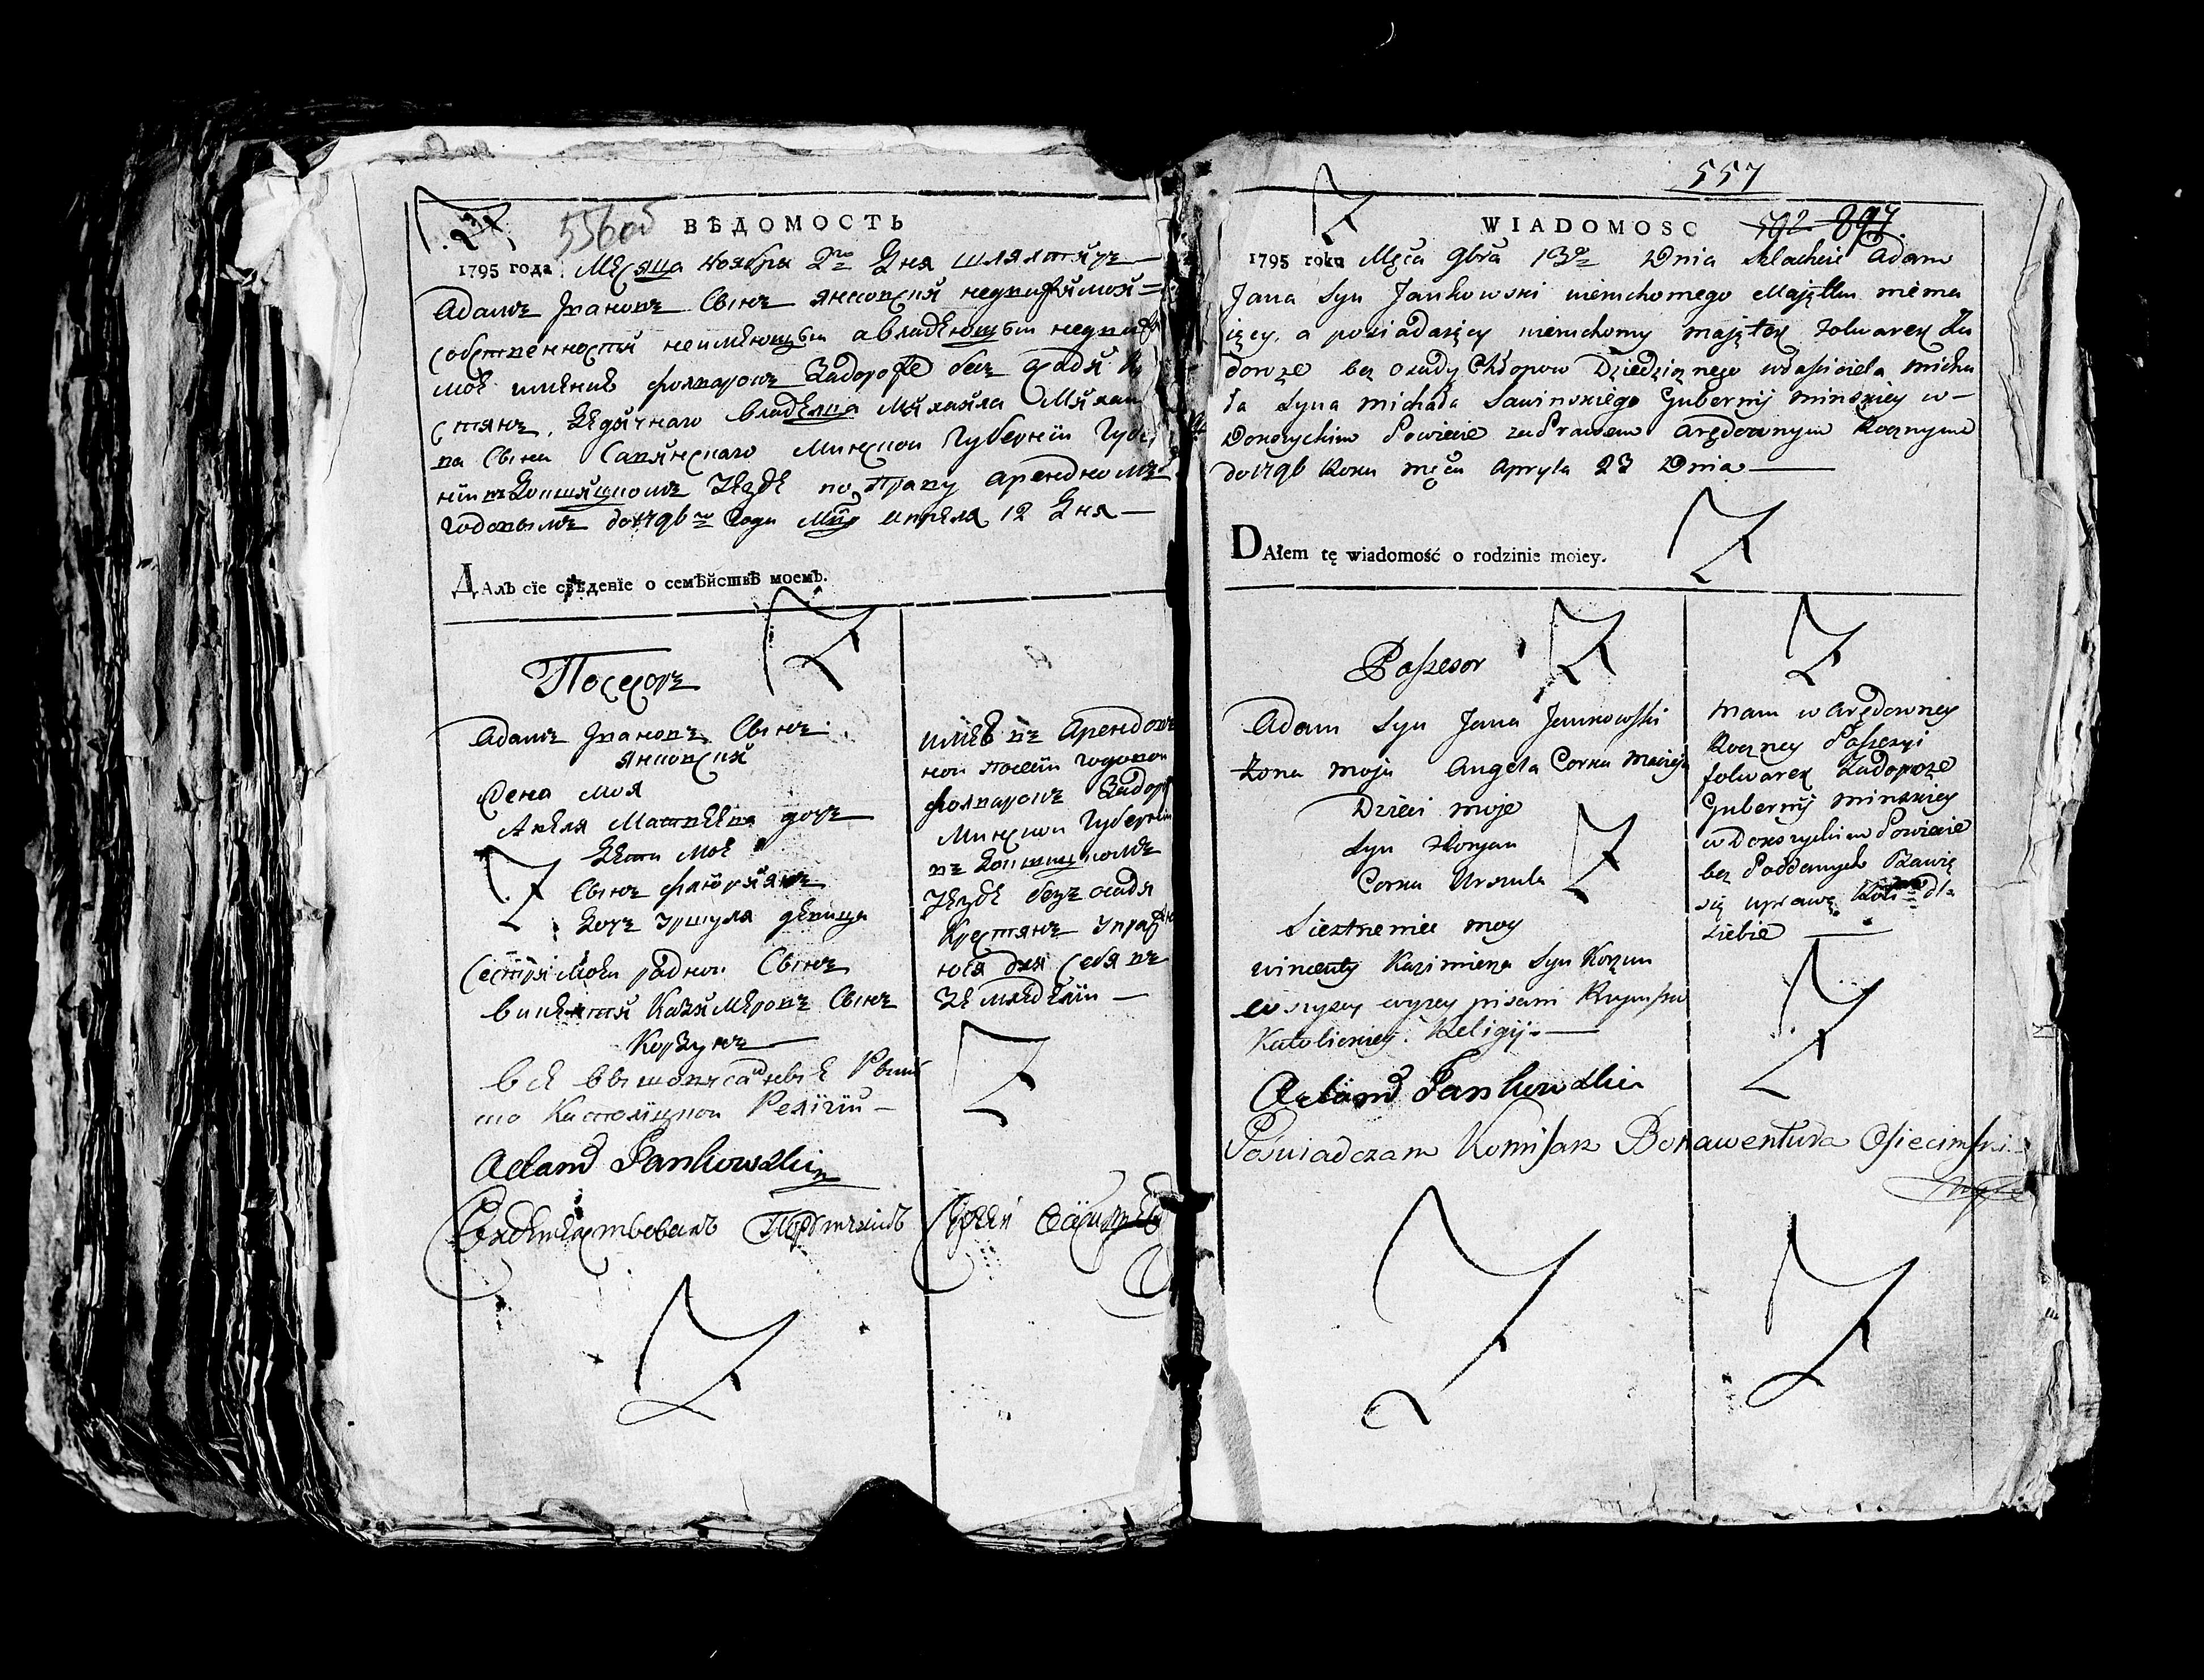 556об
ВѢДОМОСТЬ
1795 года Месяца Ноября 2го Дня шляхтичъ
Адамъ Ивановъ Сынъ Янковский недвижимой
собственности неимеющый авладеющый недвижи
мое имение фолварокъ Задорože безъ осады
Дедичнаго владелца Михайла Михай
ла Сына Савинскаго Минской Губернии
Уезде по Праву арендномъ
годовымъ до 1796го Года Апреля 12 Дня
ДАлъ сїе свѣденїе о семѣйствѣ моемъ.
Посесоръ
Адамъ Ивановъ Сынъ
Янковский
Жена Моя
Анеля Матвеева дочъ
Дети мое
Сынъ Флорыянъ
Дочъ Уршуля девица
Сестры моей родной Сынъ
винценты Казимеровъ Сынъ
Корзунъ
Все вышеписанные Рым
ско Католицкой Религии
Adam Jankowski
Свидетелствовалъ Порутчикъ
имею въ Арендов
ной посесии годовой
фолварокъ Задорo
Минской Губернии
въ
Уезде безъ осады
Крестянъ Упражня
юся для себя въ
Земледелии
557
WIADOMOSC 592 897
1795 roku Męca 9bra 13o Dnia Szlachcic Adam
Jana Syn Jankowski nieruchomego Majątku niema
iący, a posiadaiący nieruchomy majątek folwarek Za
doroze bez osady Chłopow Dziedzicznego własciciela Micha
ła Syna Michała Sawinskiego Gubernij Minskiey w
Dokszyckim Powiecie za Prawem arędownym Rocznym
do 1796 Roku męca Apryla 23 Dnia
DAłem tę wiadomość o rodzinie moiey.
Possesor
Adam Syn Jana Jankowski
Żona moja Angela Corka Macieja
Dzieci moje
Syn Floryan
Corka Urszula
Siestrzeniec moy
wincenty Kazimierza Syn Korzun
wszyscy wyzey pisani Rzymsko
Katolickiey Religij
Adam Jankowski
Poświadczam Komisarz Bonawentura Osiecimski
mam w Arędowney
Roczney Possesyi
folwarek Zadoroze
Gubernij minskiey
w Dokszyckim Powiecie
bez Poddanych Bawię
się uprawą Roli dla
siebie